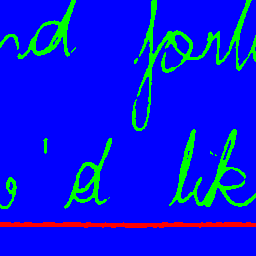 nd forl
e'd lik